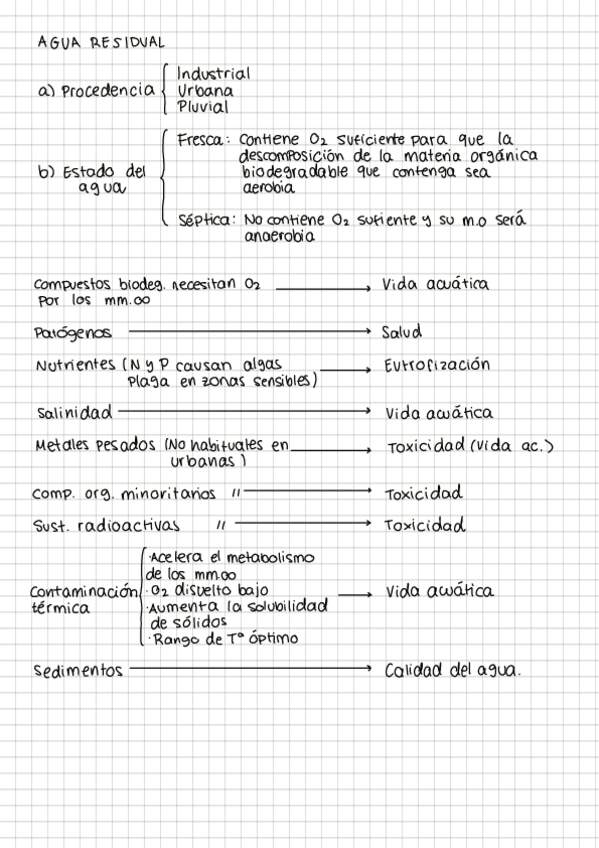 AGUA RESIDUAL
a) Procedencia
Industrial
Urbana
Pluvial
b) Estado del
agua
Fresca: Contiene O2 suficiente para que la
descomposición de la materia orgánica
biodegradable que contenga sea
aerobia
Séptica: No contiene O2 sufiente y su m.o será
anaerobia
Compuestos biodeg. necesitan O2 → Vida acuática
por los mm.oo
Patógenos → Salud
Nutrientes (N y P causan algas → Eutrofización
plaga en zonas sensibles)
Salinidad → Vida acuática
Metales pesados (No habituales en → Toxicidad (vida ac.)
urbanas)
Comp. org. minoritarios // → Toxicidad
Sust. radioactivas // → Toxicidad
Contaminación
térmica
·Acelera el metabolismo
de los mm.oo
·O2 disuelto bajo → Vida acuática
·Aumenta la solubilidad
de sólidos
·Rango de Tª óptimo
Sedimentos → Calidad del agua.